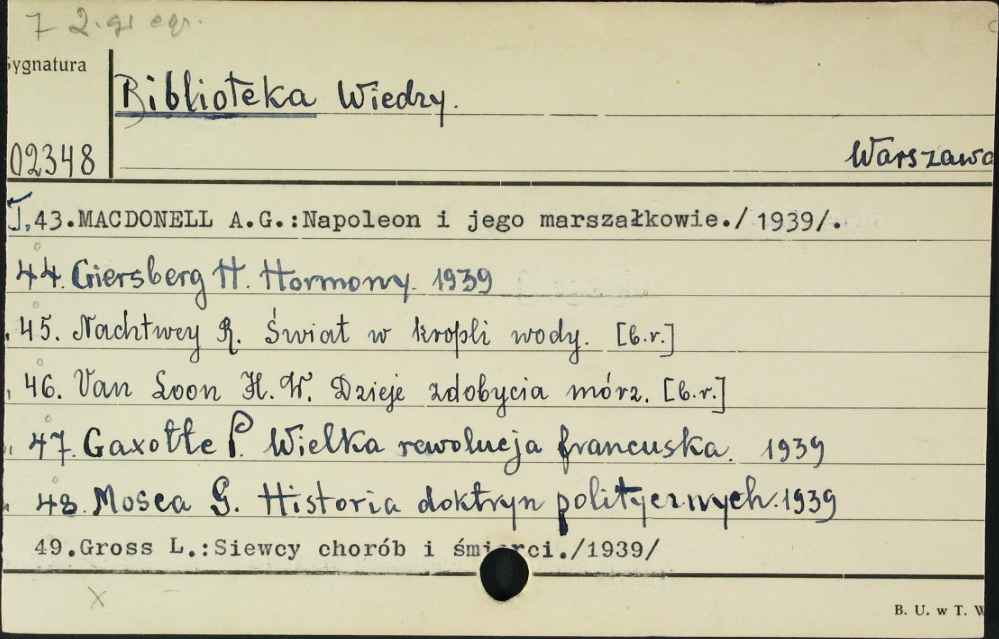 7 2.gi egr.
Sygnatura
Biblioteka Wiedzy.
02348
Warszawa
T.43.MACDONELL A.G.:Napoleon i jego marszałkowie./1939/.
44. Giersberg H. Hormony. 1939
45. Nachtwey R. Świat w kropli wody. [b.r.]
46. Van Loon H.W. Dzieje zdobycia mórz. [b.r.]
47. Gaxotte P. Wielka rewolucja francuska. 1939
48. Mosca G. Historia doktryn politycznych. 1939
49.Gross L.:Siewcy chorób i śmierci./1939/
x
B. U. w T. W